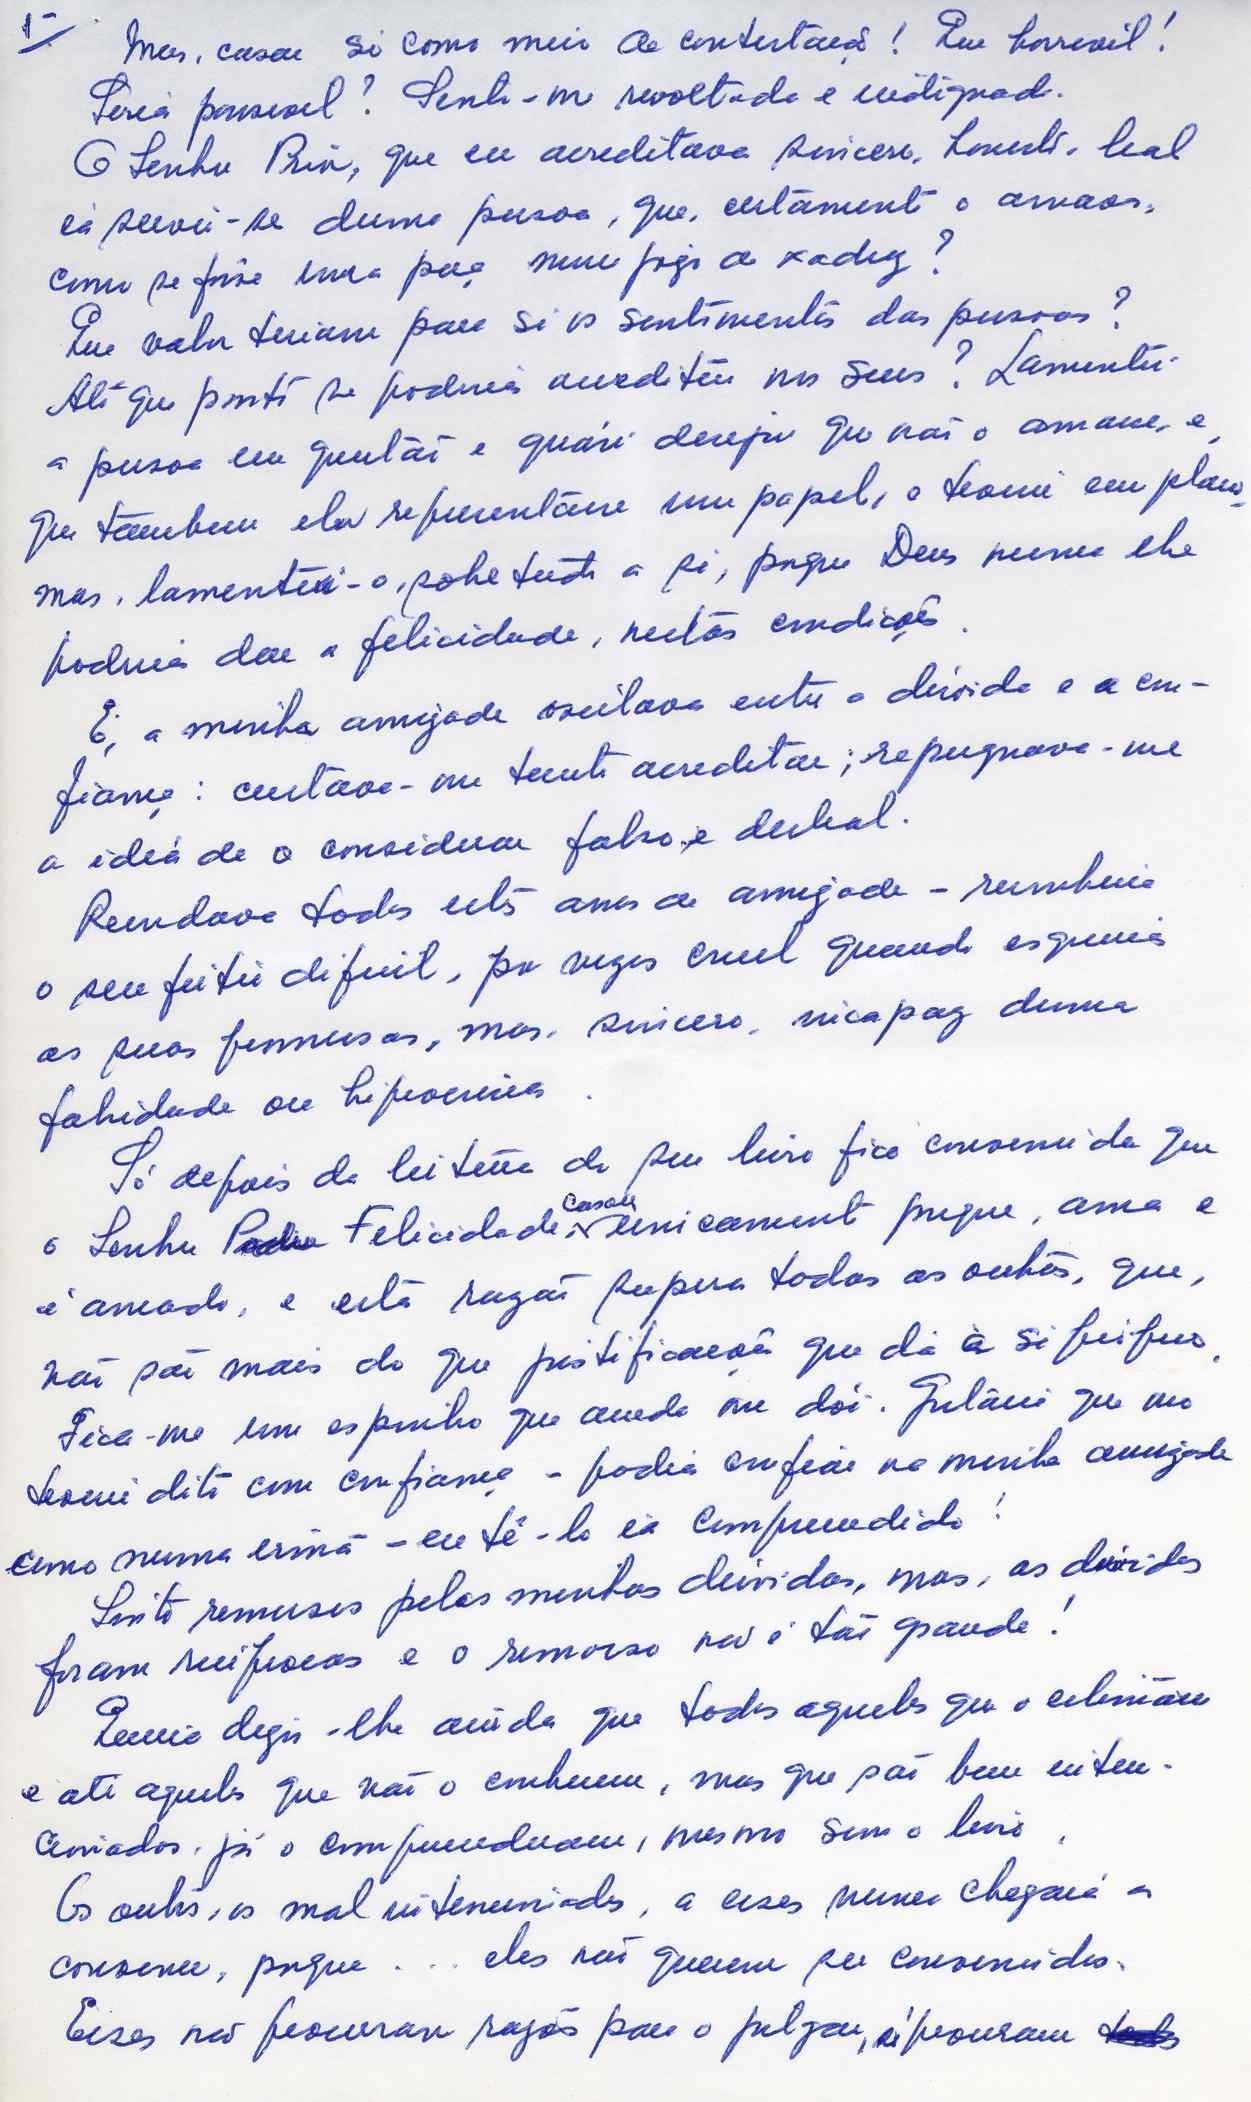 1-
Mas, casar só como meio de contestação! Que horrível!
Seria possível? Senti-me revoltada e indignada.
O Senhor Prior, que eu acreditava sincero, honesto, leal
ia servir-se duma pessoa, que, certamente o amava,
como se fôsse uma peça num jogo de xadrez?
Que valor teriam para si os sentimentos das pessoas?
Até que ponto se poderia acreditar nos seus? Lamentei
a pessoa em questão e quási desejei que não o amasse, e
que também ela representasse um papel, o teatro em pleno,
mas, lamentei-o, sobretudo a si, porque Deus nunca lhe
poderia dar a felicidade, nestas condições.
E, a minha amizade oscilava entre a dúvida e a con-
fiança: custava-me tanto acreditar; repugnava-me
a ideia de o considerar falso e desleal.
Recordava todos estes anos de amizade - reconhecia
o seu feitio difícil, por vezes cruel quando esgrimia
as suas promessas, mas, sincero, incapaz duma
falsidade ou hipocrisia.
Só depois da leitura do seu livro fico convencida que
o Senhor Padre Felicidade casou unicamente porque, ama e
é amado, e esta razão supera todas as outras, que,
não são mais do que justificações que dá a si próprio.
Fica-me um espinho que ainda me dói. Gostaria que mo
tivesse dito com confiança - podia confiar na minha amizade
como numa irmã - eu tê-lo ia compreendido!
Sinto remorsos pelas minhas dúvidas, mas, as dúvidas
foram recíprocas e o remorso não é tão grande!
Queria dizer-lhe ainda que todos aqueles que o estimam
e até aqueles que não o conhecem, mas que são bem inten-
cionados, já o compreenderam, mesmo sem o livro.
Os outros, os mal intencionados, a esses nunca chegará a
convencer, porque ... eles não querem ser convencidos.
Esses não procuram razões para o julgar, só procuram